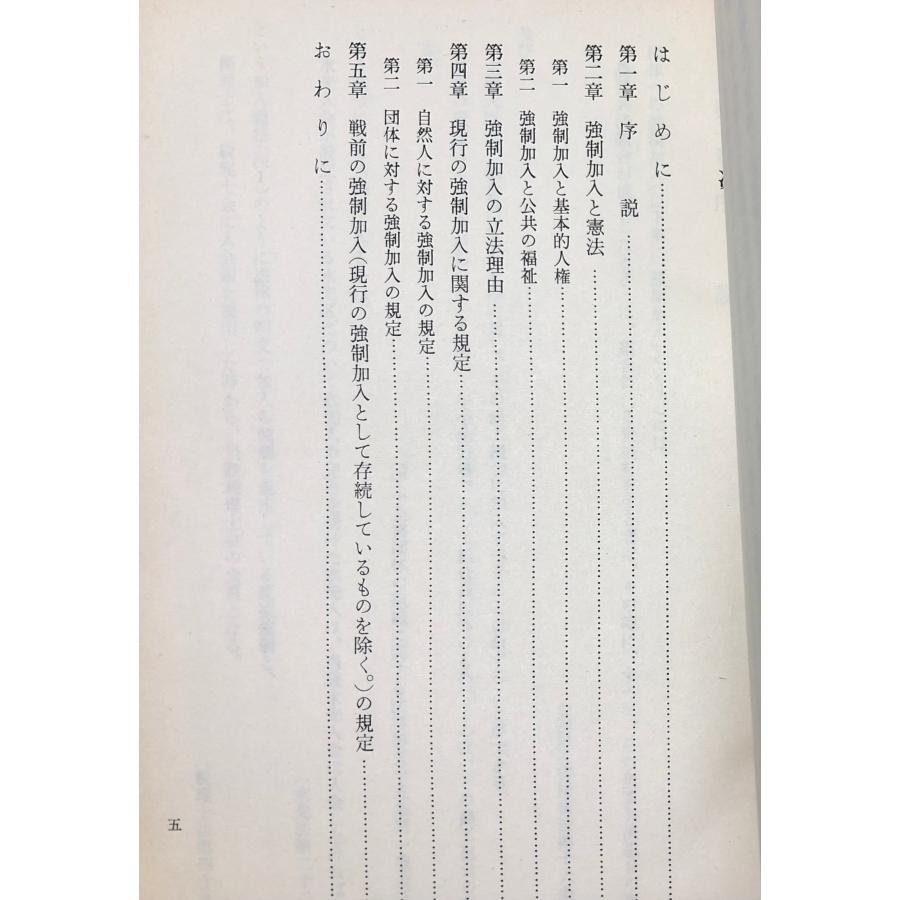 はじめに
第一章 序説
第二章 強制加入と憲法
第一 強制加入と基本的人権
第二 強制加入と公共の福祉
第三章 強制加入の立法理由
第四章 現行の強制加入に関する規定
第一 自然人に対する強制加入の規定
第二 団体に対する強制加入の規定
第五章 戦前の強制加入(現行の強制加入として存続しているものを除く。)の規定
おわりに
五